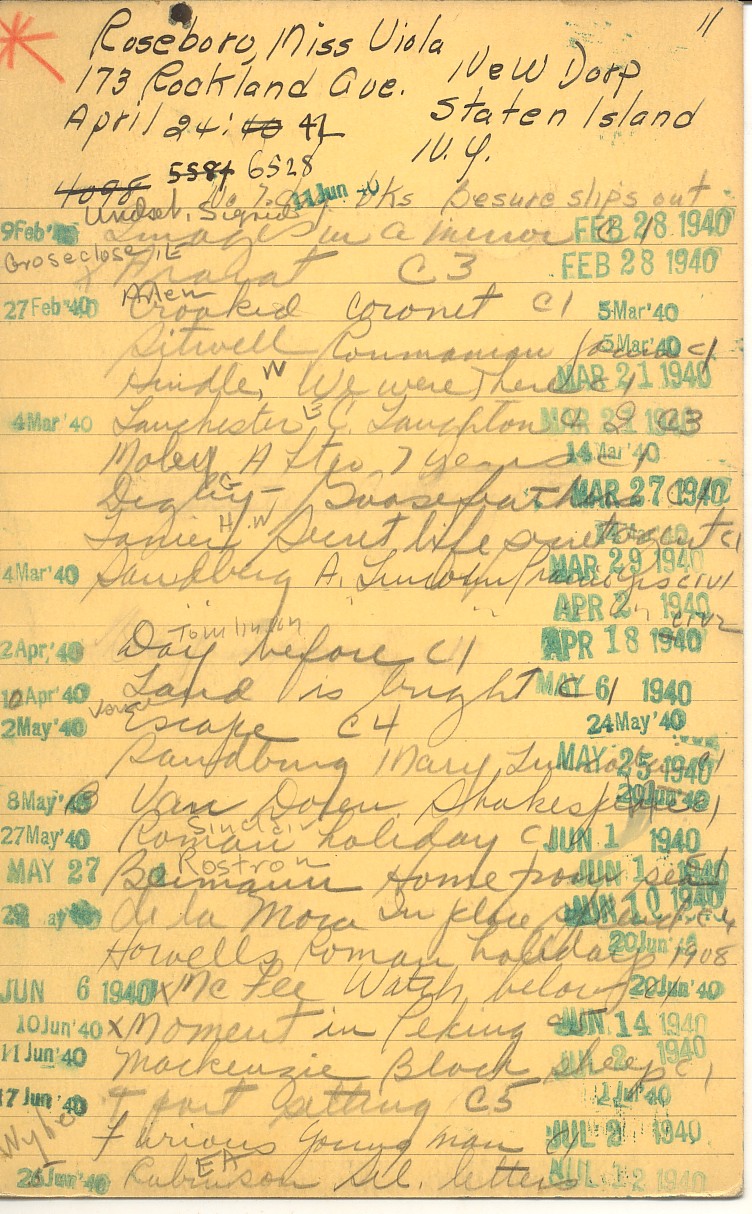 11
Roseboro, Miss Viola
173 Rockland Ave. New Dorp
April 24: 40 42 Staten Island
N.Y.
4098 5584 6528
11 Jun 40 bks Be sure slips out
Undset, Sigrid
9 Feb' Images in a mirror C1 FEB 28 1940
Groseclose, E
x Ararat C3 FEB 28 1940
Arlen
27 Feb '40 Crooked coronet C1 5 Mar '40
Sitwell Roumanian C1 5 Mar '40
Hindle, W We were There C1 MAR 21 1940
4 Mar '40 Lanchester, E C. Laughton & I C3 MAR 21 1940
Mabel After 7 years C1 14 Mar '40
Digby, G Goosefeathers C1 MAR 27 1940
Lanier, H.W Secret life C1
4 Mar '40 Sandburg A. Lincoln Prairie yrs C1V1 MAR 29 1940
" " " C1V2 APR 2 1940
Tomlinson
2 Apr '40 Day before C1 APR 18 1940
10 Apr '40 Land is bright C1 MAY 6 1940
Vance
2 May '40 Escape C4 24 May '40
Sandburg Mary Lincoln C1 MAY 25 1940
8 May '40 Van Doren Shakespeare C1 20 Jun '40
Sinclair
27 May '40 Roman holiday C JUN 1 1940
Rostron
MAY 27 Home from sea JUN 1 1940
de la Mora In place of C4 JUN 10 1940
Howells Roman holidays 1908 20 Jun '40
JUN 6 1940 x McFee Watch below C1 20 Jun '40
10 Jun '40 x Moment in Peking JUN 14 1940
11 Jun '40 Mackenzie Black sheep C1 JUL 2 1940
17 Jun '40 getting C5 1 Jul '40
Wylie
Furious young man C1 JUL 2 1940
26 Jun '40 Robinson EA Sel. letters JUL 12 1940